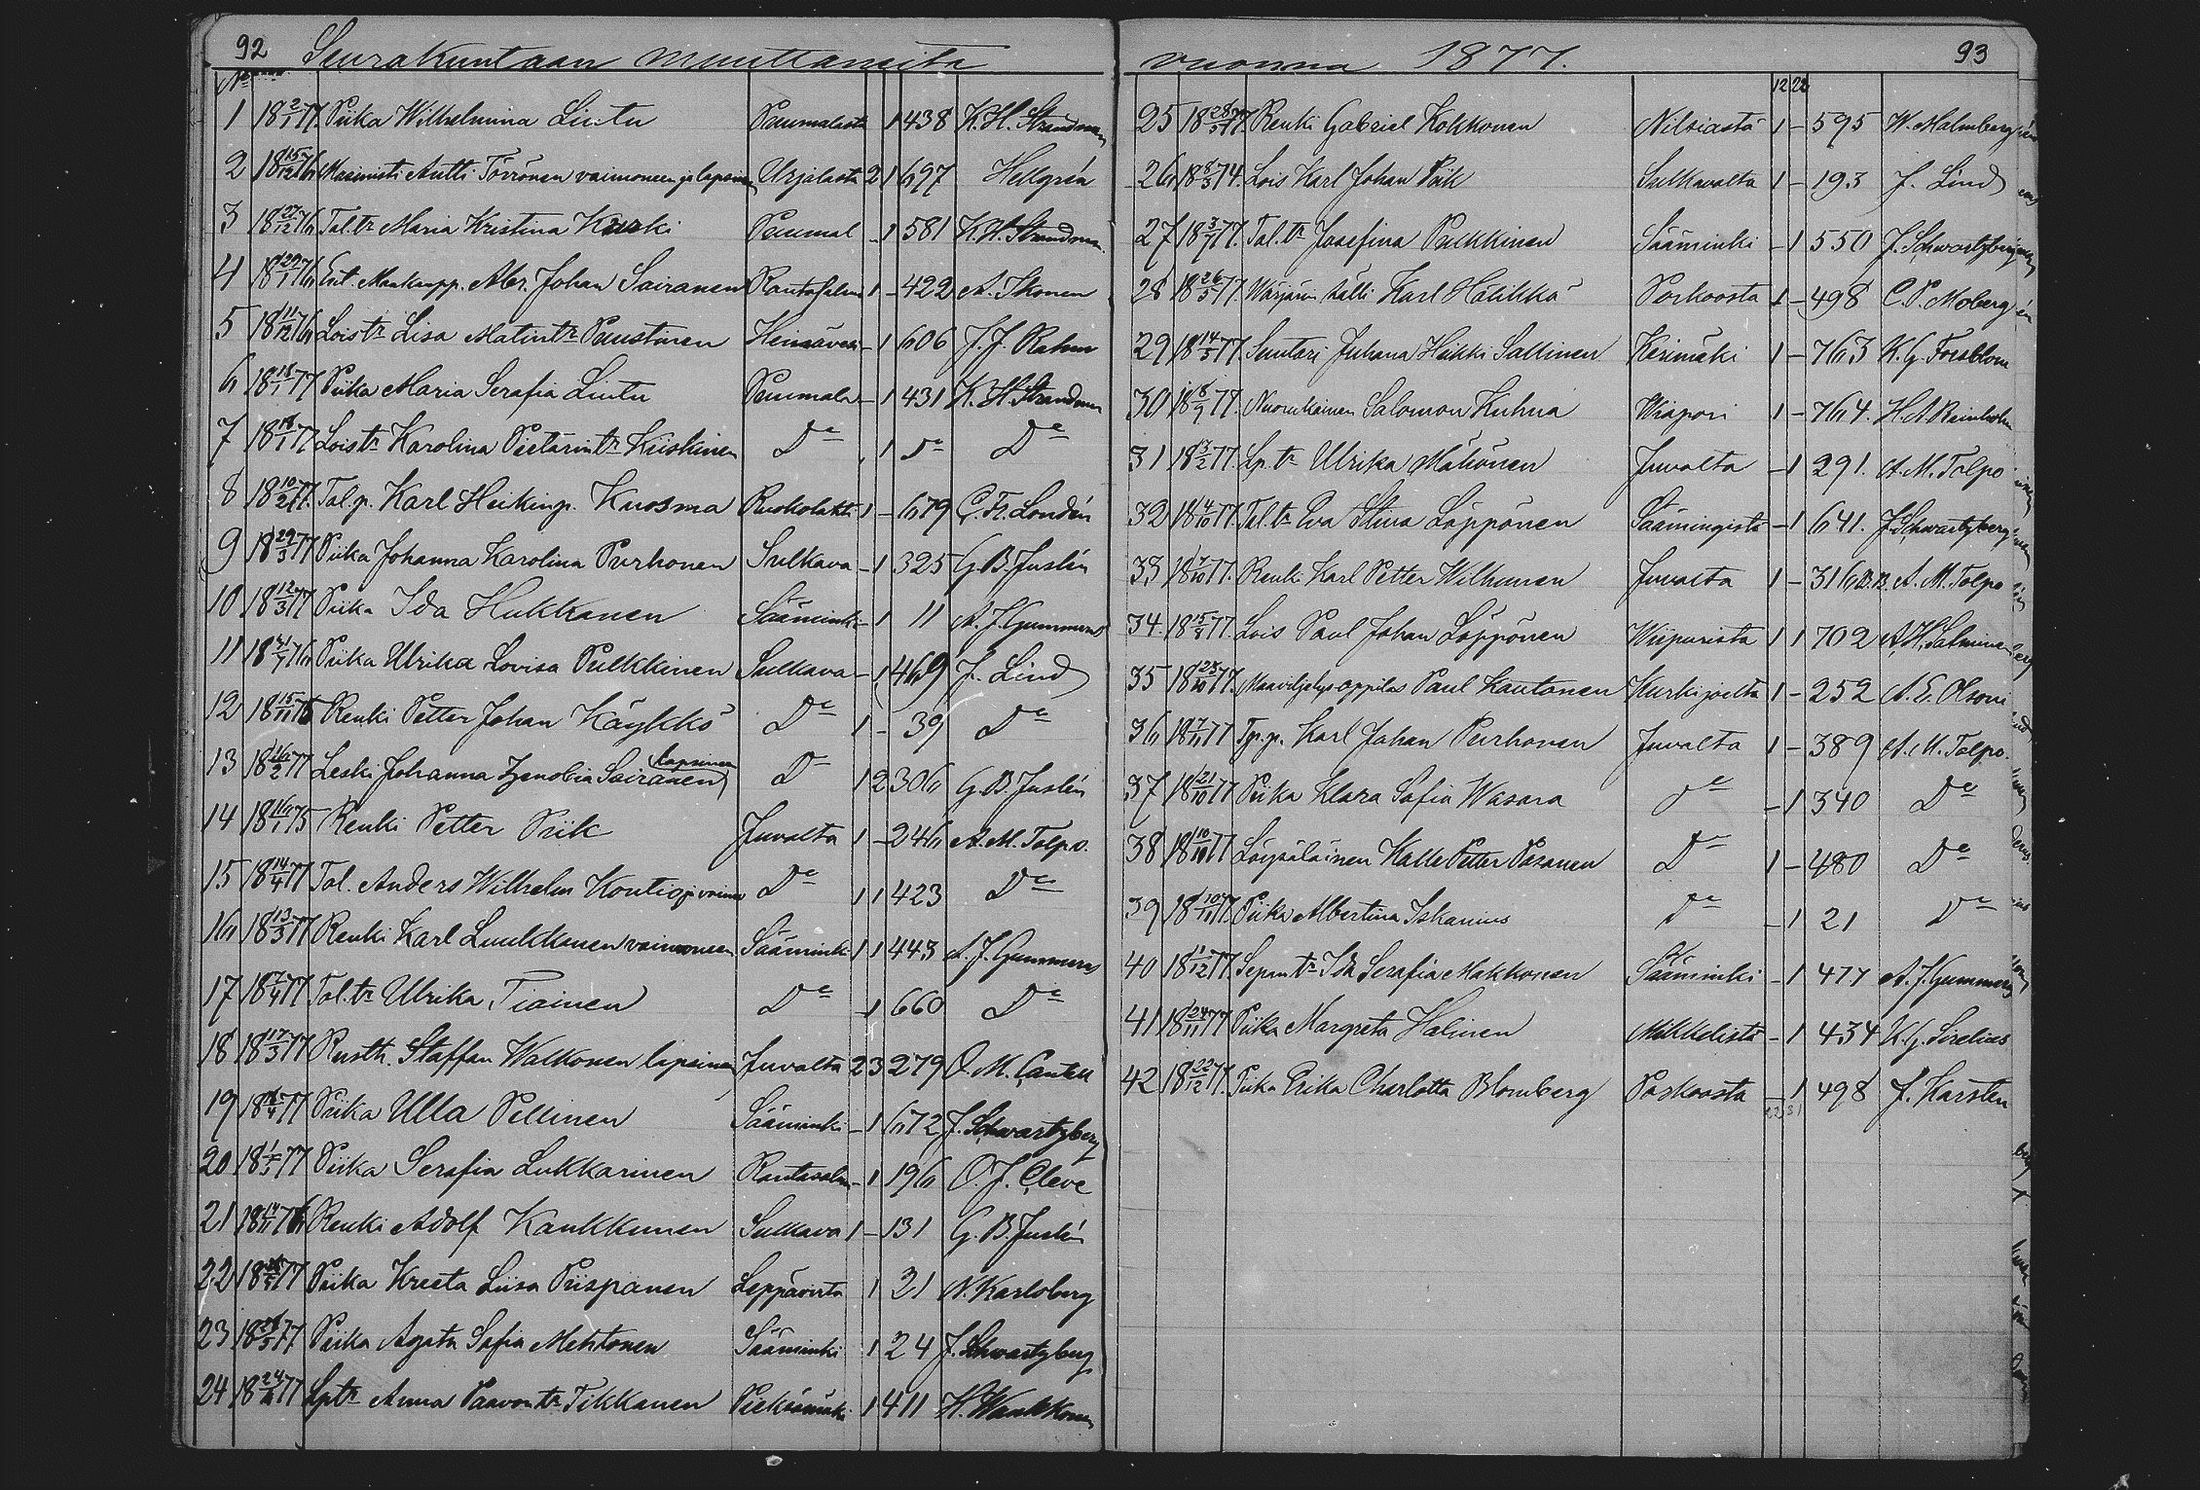 92 Seurakuntaan muuttaneita
No
1 18 2/1 77. Piika Wilhelmina Lintu Puumalasta 1 438 K. H. Strandman
2 18 15/12 76 Masinisti Antti Törrönen vaimoneen ja lapsineen Urjalasta 2 1 697 Hellgrén
3 18 27/12 76 Tal. tr Maria Kristina Kurki Puumal - 1 581 K. H. Strandman
4 18 29/1 76 Ent. Maakaupp. Abr. Johan Sairanen Rantasalmi 1 - 422 A. Ikonen
5 18 11/12 76 Lois tr Lisa Matintr Puustinen Heinävesi - 1 606 J. J. Rahm
6 18 18/1 77 Piika Maria Serafia Lintu Puumala - 1 431 K. H. Strandman
7 18 18/1 77 Lois tr Karolina Pietarin tr Kiiskinen De 1 De De
8 18 10/2 77. Tal. p. Karl Heikinp. Kuosma Ruokolahti 1 - 679 C. Fr. Londén
9 18 29/3 77 Piika Johanna Karolina Purhonen Sulkava - 1 325 G. B. Juslén
10 18 12/3 77 Piika Ida Hukkanen Sääminki - 1 11 A. J. Gummerus
11 18 76 Piika Ulrika Lovisa Pulkkinen Sulkava - 1 469 J. Lind
12 18 15/11 Renki Petter Johan Käykkö De 1 - 39 De
13 18 2 77 Leski Johanna Zenobia Sairanen lapsineen De 1 2 306 G. B. Juslén
14 18 16/1 75 Renki Petter Piik Juvalta 1 - 246 A. M. Tolpo.
15 18 14/4 77 Tal. Anders Wilhelm Kontio ja vaimo De 1 1 423 De
16 18 13/3 77 Renki Karl Luukkanen vaimoneen Sääminki 1 1 443 A. J. Gummerus
17 18 7/4 77 Tal. tr Ulrika Tiainen De - 1 660 De
18 18 17/3 77 Rusth. Staffan Walkonen lapsineen Juvalta 2 3 279 O. M. Cantell
19 18 4 77 Piika Ulla Pellinen Sääminki - 1 672 J. Schwartzberg
20 18 77 Piika Serafia Lukkarinen Rantasalmi - 1 196 O. J. Cleve
21 18 11 76 Renki Adolf Kaukkunen Sulkava 1 - 131 G. B. Juslén
22 18 77 Piika Kreeta Liisa Piispanen Leppävirta 1 21 N. Karlsberg
23 18 5 77 Piika Agata Sofia Mehtonen Sääminki 1 24 J. Schwartzberg
24 18 24 77 Lp tr Anna Paavon tr Tikkanen Pieksämäki 1 411 H. Waukkonen
vuonna 1877. 93
12 22
25 18 28/5 77. Renki Gabriel Kokkonen Nilsiästä 1 - 595 W. Malmberg
26 18 8/3 74. Lois Karl Johan Piik Sulkavalta 1 - 193 J. Lind
27 18 3/7 77. Tal. tr Josefina Pulkkinen Sääminki - 1 550 J. Schwartzberg
28 18 26/5 77. Wärjärin källi Karl Hälikkä Porvoosta 1 - 498 C. P. Moberg
29 18 14/5 77 Suutari Juhana Heikki Sallinen Kerimäki 1 - 763 K. G. Forsblom
30 18 8/9 77. Nuorukainen Salomon Kuhna Wiapori 1 - 764. H. A. Reinholm
31 18 2 77. Lp. tr Ulrika Mähönen Juvalta - 1 291. A. M. Tolpo
32 18 4/10 77. Tal. tr Eva Stiina Löppönen Säämingistä - 1 641. J. Schwartzberg
33 18 7/10 77. Renki Karl Petter Wilhunen Juvalta 1 - 316 A. M. Tolpo
34. 18 15 77. Lois Paul Johan Löppönen Wiipurista 1 1 702 A. H. Salminen
35 18 23/10 77. Maaviljelysoppilas Paul Kautonen Kurkijoelta 1 - 252 A. E. Olsoni
36 18 7/11 77 Tp. p. Karl Johan Purhonen Juvalta 1 - 389 A. M. Tolpo.
37 18 21/10 77 Piika Klara Sofia Wasara De - 1 340 De
38 18 10/10 77 Löysäläinen Kalle Petter Pasanen De 1 - 480 De
39 18 10/11 77 Piika Albertina Iskanius De - 1 21 De
40 18 1/12 77 Sepän tr Ida Serafia Makkonen Sääminki - 1 477 A. J. Gummerus
41 18 24/11 77 Piika Margreta Halinen Mikkelistä - 1 434 K. G. Sirelius
42 18 22/12 77. Piika Erika Charlotta Blomberg Porvoosta - 1 498 J. Karsten